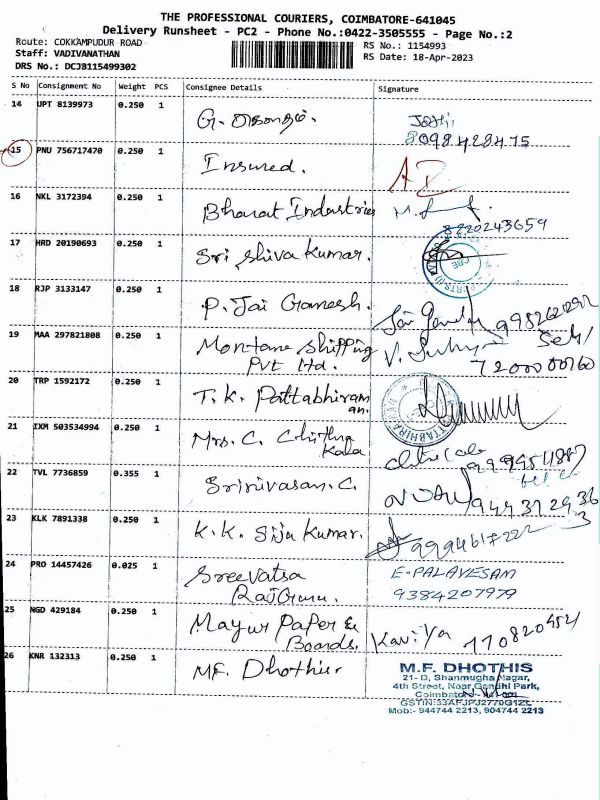 THE PROFESSIONAL COURIERS, COIMBATORE-641045
Delivery Runsheet - PC2 - Phone No.:0422-3505555 - Page No.:2
Route: COKKAMPUDUR ROAD
Staff: VADIVANATHAN
DRS No.: DCJB115499302
RS No.: 1154993
RS Date: 18-Apr-2023
S No Consignment No Weight PCS Consignee Details Signature
14 UPT 8139973 0.250 1 G.
8098428475
15 PNU 756717470 0.250 1 Insured.
16 NKL 3172394 0.250 1 Bharat Industries
8220243659
17 HRD 20190693 0.250 1 Sri Shiva Kumar.
18 RJP 3133147 0.250 1 P. Jai Ganesh.
19 MAA 297821808 0.250 1 Montane Shipping
Pvt Ltd.
20 TRP 1592172 0.250 1 T. K. Pattabhiram
an.
21 IXM 503534994 0.250 1 Mrs. C. Chithra
Kala
22 TVL 7736859 0.355 1 Srinivasan. C.
23 KLK 7891338 0.250 1 K. K. Siju Kumar.
24 PRO 14457426 0.025 1 Sreevatsa E. PALAVESAM
RajGuru. 9384207979
25 NGD 429184 0.250 1 Mayur Paper & Kaviya
Boards.
26 KNR 132313 0.250 1 MF. Dhothies
M.F. DHOTHIS
21- D, Shanmugha Nagar,
4th Street, Near Gandhi Park,
Coimbatore
Mob:- 944744 2213, 904744 2213